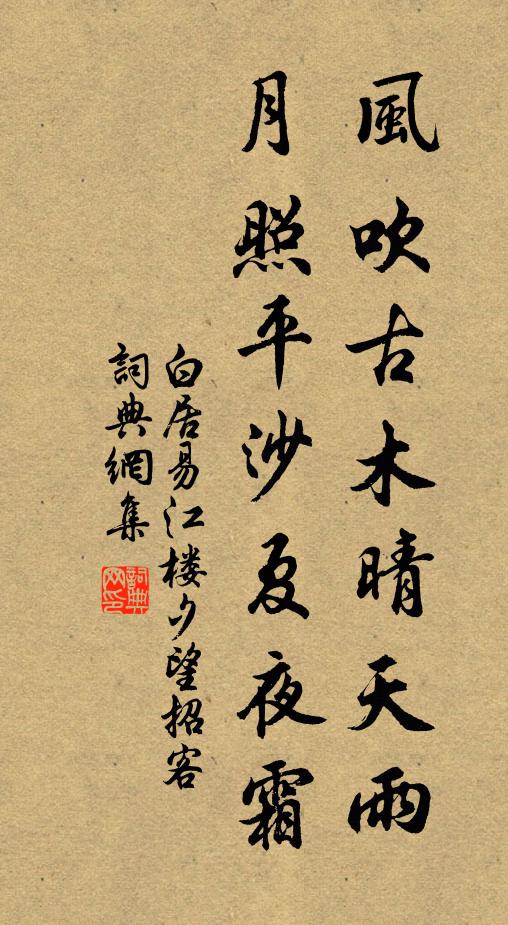 風吹古木晴天雨
月照平沙夏夜霜
白居易江楼夕望招客
詞典網集
詞典
网印